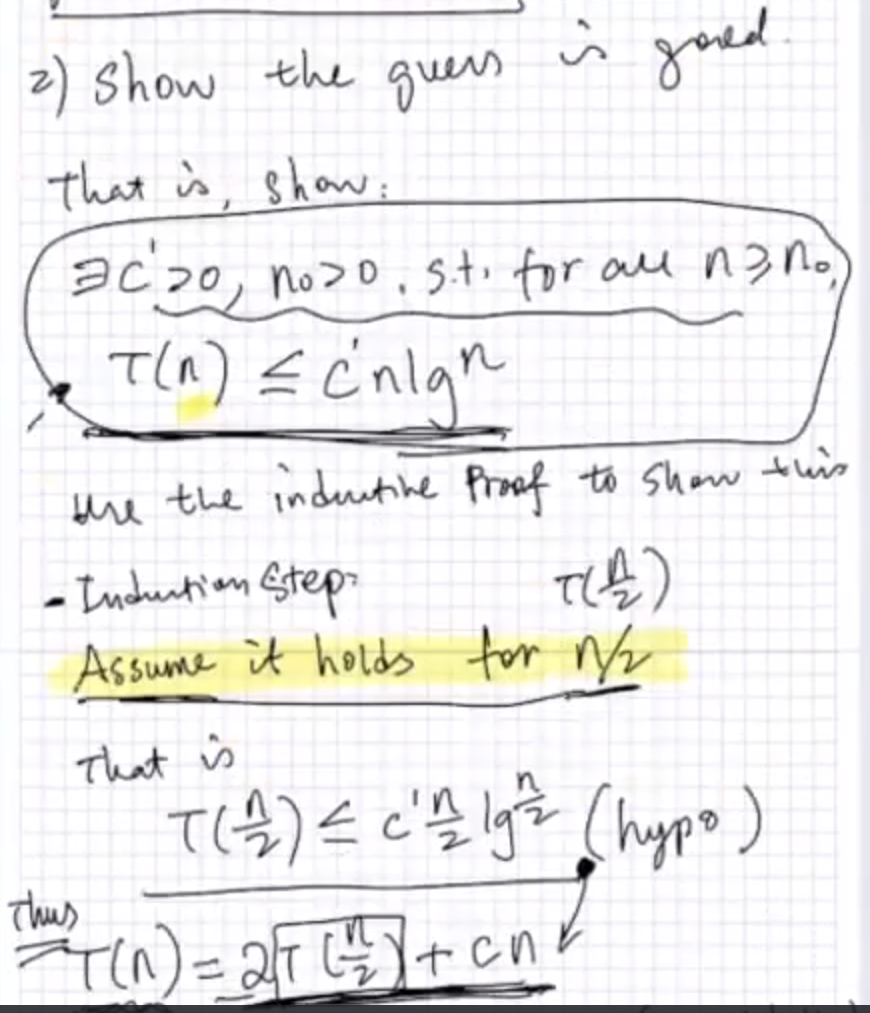 2) Show the guess is good.
That is, show:
∃c'>0, n₀>0, s.t. for all n≥n₀,
T(n) ≤ c'nlgn
Use the inductive Proof to show this
- Induction Step: T(n/2)
Assume it holds for n/2
That is
T(n/2) ≤ c' n/2 lg n/2 (hypo)
Thus
T(n) = 2T(n/2) + cn